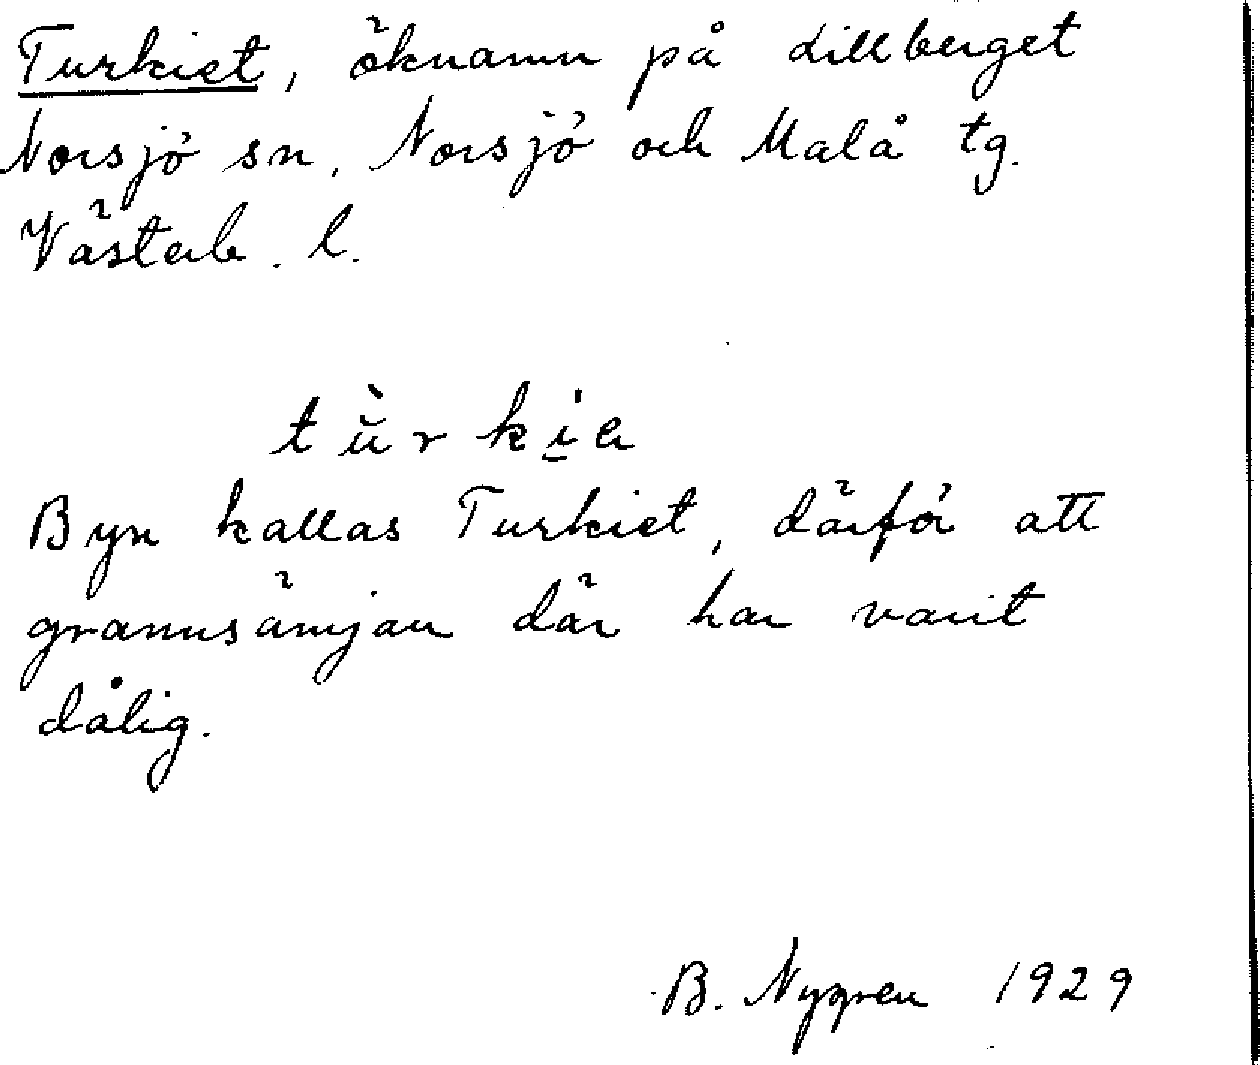 Turkiet, öknamn på Lillberget
Norsjö sn, Norsjö och Malå tg.
Västerb. l.
Byn kallas Turkiet, därför att
grannsämjan där har varit
dålig.
B. Nygren 1929